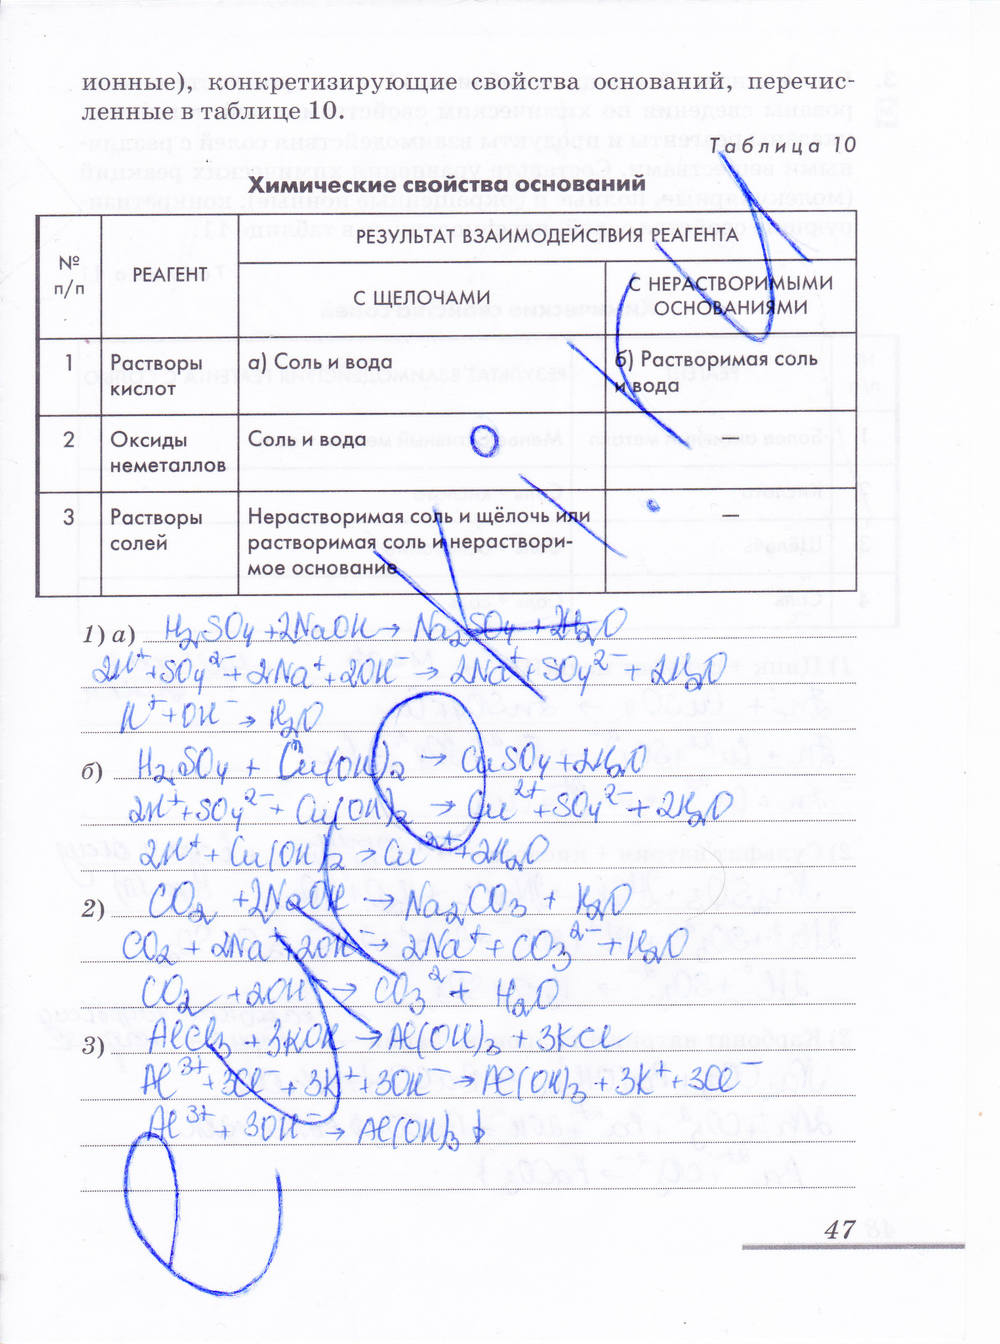 ионные), конкретизирующие свойства оснований, перечис-
ленные в таблице 10.
Таблица 10
Химические свойства оснований
№ п/п
РЕАГЕНТ
РЕЗУЛЬТАТ ВЗАИМОДЕЙСТВИЯ РЕАГЕНТА
С ЩЕЛОЧАМИ
С НЕРАСТВОРИМЫМИ
ОСНОВАНИЯМИ
1 Растворы а) Соль и вода б) Растворимая соль
кислот и вода
2 Оксиды Соль и вода —
неметаллов
3 Растворы Нерастворимая соль и щёлочь или —
солей растворимая соль и нераствори-
мое основание
1) а) H₂SO₄ + 2NaOH → Na₂SO₄ + 2H₂O
2H⁺ + SO₄²⁻ + 2Na⁺ + 2OH⁻ → 2Na⁺ + SO₄²⁻ + 2H₂O
H⁺ + OH⁻ → H₂O
б) H₂SO₄ + Cu(OH)₂ → CuSO₄ + 2H₂O
2H⁺ + SO₄²⁻ + Cu(OH)₂ → Cu²⁺ + SO₄²⁻ + 2H₂O
2H⁺ + Cu(OH)₂ → Cu²⁺ + 2H₂O
2) CO₂ + 2NaOH → Na₂CO₃ + H₂O
CO₂ + 2Na⁺ + 2OH⁻ → 2Na⁺ + CO₃²⁻ + H₂O
CO₂ + 2OH⁻ → CO₃²⁻ + H₂O
3) AlCl₃ + 3KOH → Al(OH)₃ + 3KCl
Al³⁺ + 3Cl⁻ + 3K⁺ + 3OH⁻ → Al(OH)₃ + 3K⁺ + 3Cl⁻
Al³⁺ + 3OH⁻ → Al(OH)₃↓
47